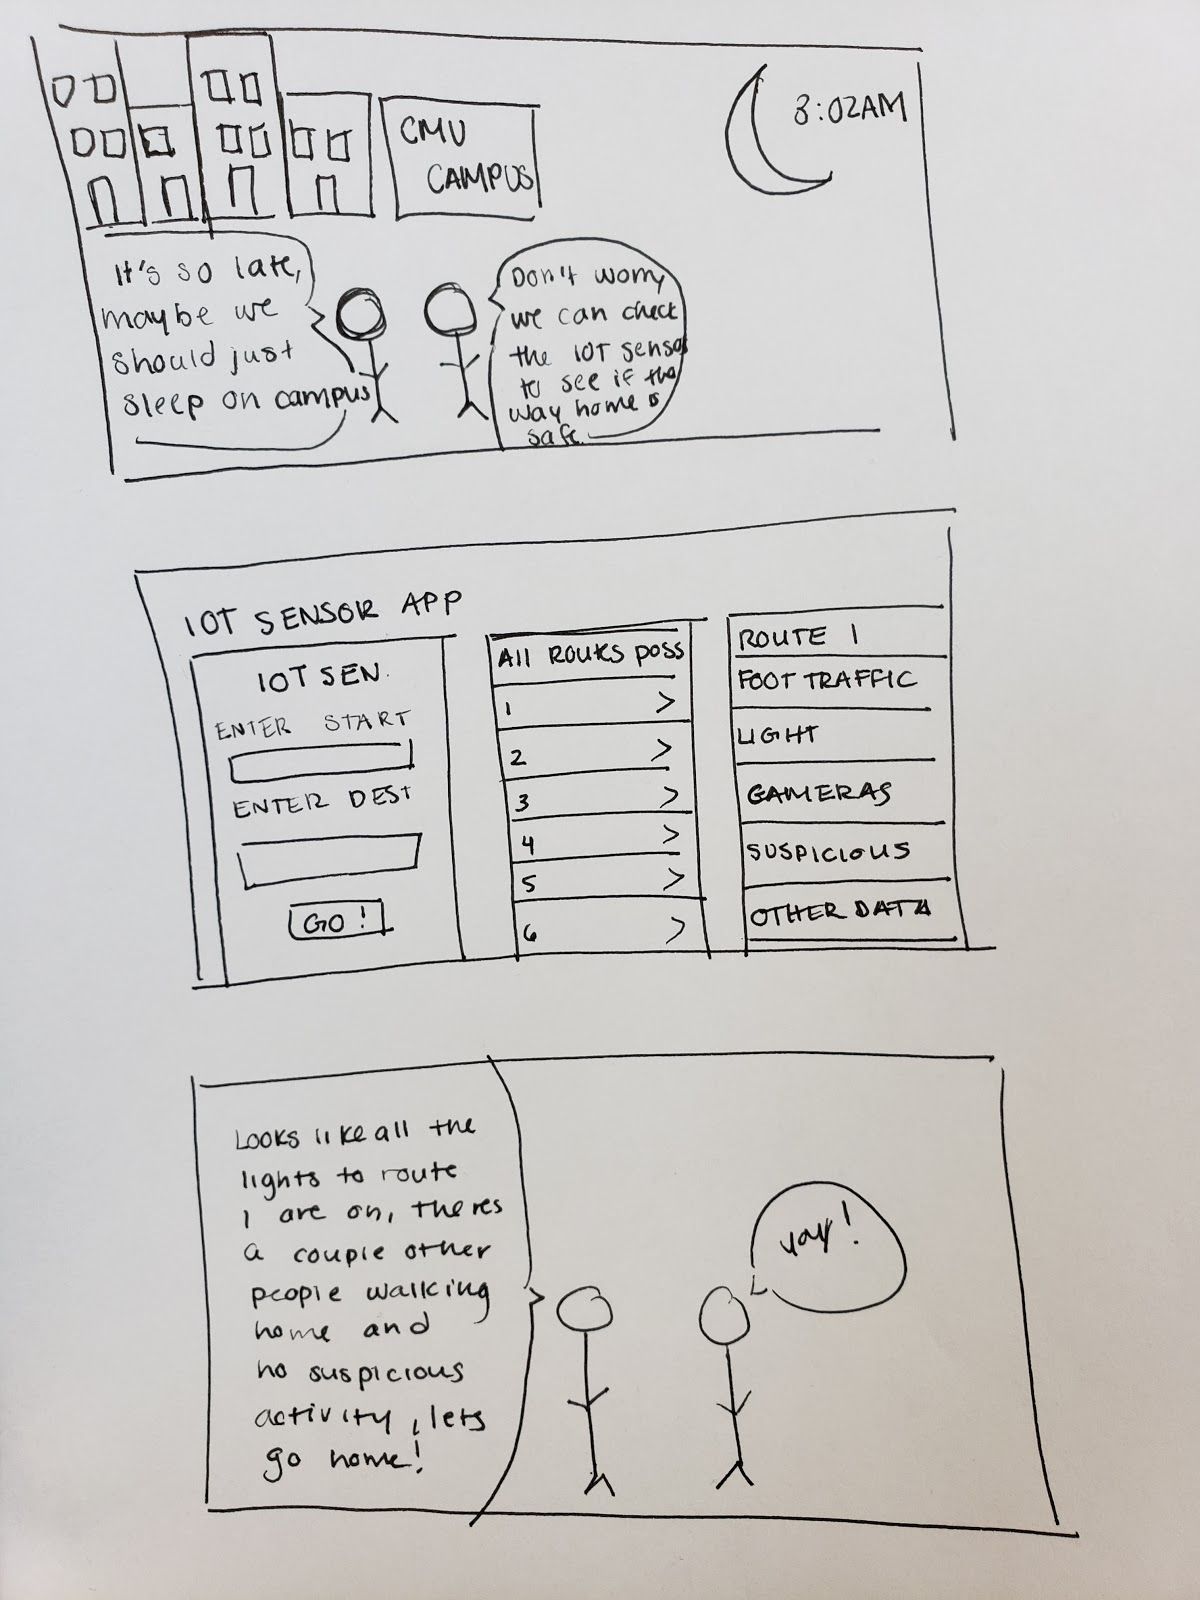 CMU
CAMPUS
3:02AM
It's so late,
maybe we
should just
sleep on campus
Don't worry
we can check
the IOT sensor
to see if the
way home is
safe.
IOT SENSOR APP
IOT SEN.
ENTER START
ENTER DEST
GO!
All ROUTES POSS
1 >
2 >
3 >
4 >
5 >
6 >
ROUTE 1
FOOT TRAFFIC
LIGHT
CAMERAS
SUSPICIOUS
OTHER DATA
Looks like all the
lights to route
1 are on, theres
a couple other
people walking
home and
no suspicious
activity, lets
go home!
yay!